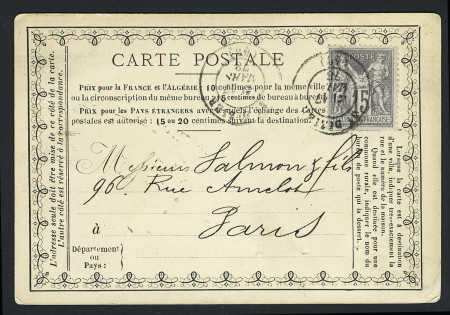 CARTE POSTALE
Prix pour la France et l'Algérie: 10 centimes pour la même ville
ou la circonscription du même bureau; 15 centimes de bureau à bureau.
Prix pour les pays étrangers avec lesquels l'échange des Cartes
postales est autorisé: 15 ou 20 centimes suivant la destination.
Messieurs Salmon & fils
96 Rue Amelot
à Paris
Département
ou
Pays:
Ce côté de la carte.
L'autre côté est réservé à la correspondance.
Lorsque la carte est à destination
d'une ville, indiquer très-exactement la
rue et le numéro de la maison.
Quand elle est destinée pour une
commune rurale, indiquer le nom du
bureau de poste qui la dessert.
15